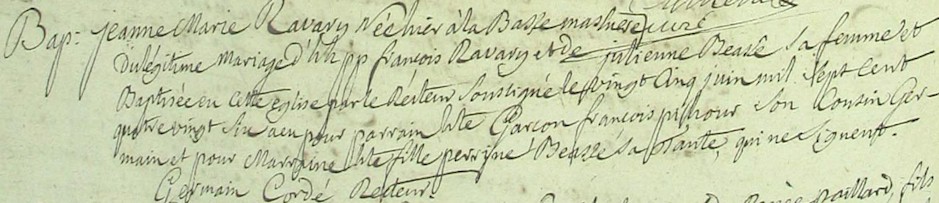 Bap: jeanne Marie Ravary Née hier à la Basse
du légitime Mariage d'hh pp françois Ravary et de julienne Beassé sa femme et
Baptisée en cette église par le Recteur soussigné le vingt cinq juin mil sept cent
quatre vingt six a eu pour parrain hte Garçon françois son Cousin Ger-
main et pour Marraine hte fille perrine Beassé sa Tante, qui ne signent.
Germain Cordé Recteur
paillard, fils